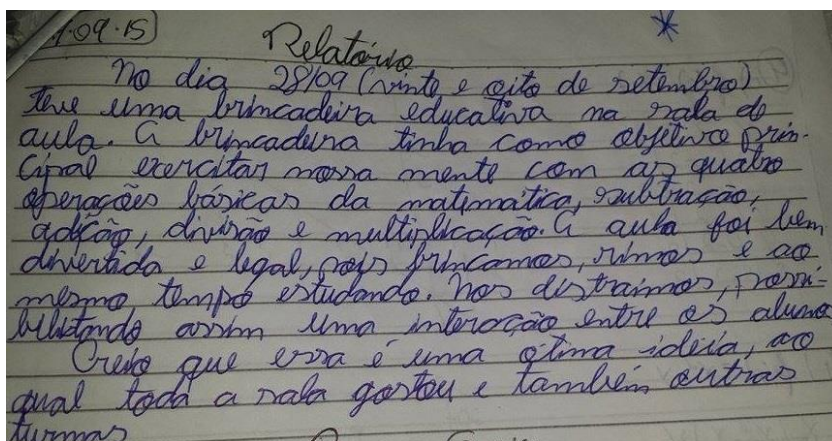 09.15
Relatório
No dia 28/09 (vinte e oito de setembro)
teve uma brincadeira educativa na sala de
aula. A brincadeira tinha como objetivo prin-
cipal exercitar nossa mente com as quatro
operações básicas da matemática, subtração,
adição, divisão e multiplicação. A aula foi bem
divertida e legal, pois brincamos, rimos e ao
mesmo tempo estudando. Nos distraimos, possi-
bilitando assim uma interação entre os aluno
Creio que essa é uma ótima idéia, ao
qual toda a sala gostou e também outras
turmas